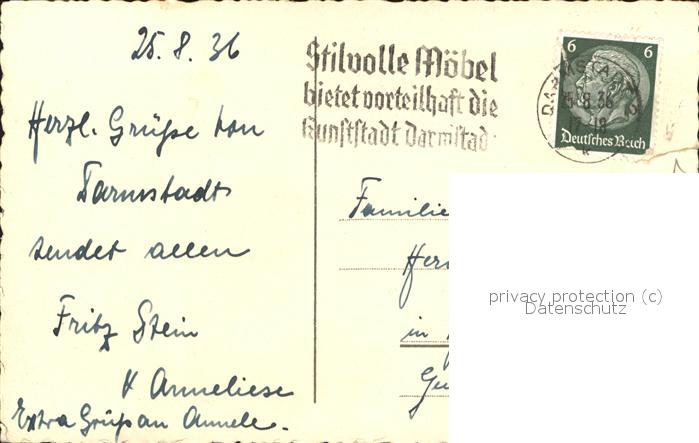 25.8.36
Herzl. Grüße von
Darmstadt
sendet allen
Fritz Stein
Anneliese
Extra Gruß an Annele.
Stilvolle Möbel
bietet vorteilhaft die
Kunststadt Darmstadt
6 6
Deutsches Reich
25.8.36
Familie
in
privacy protection (c)
Datenschutz